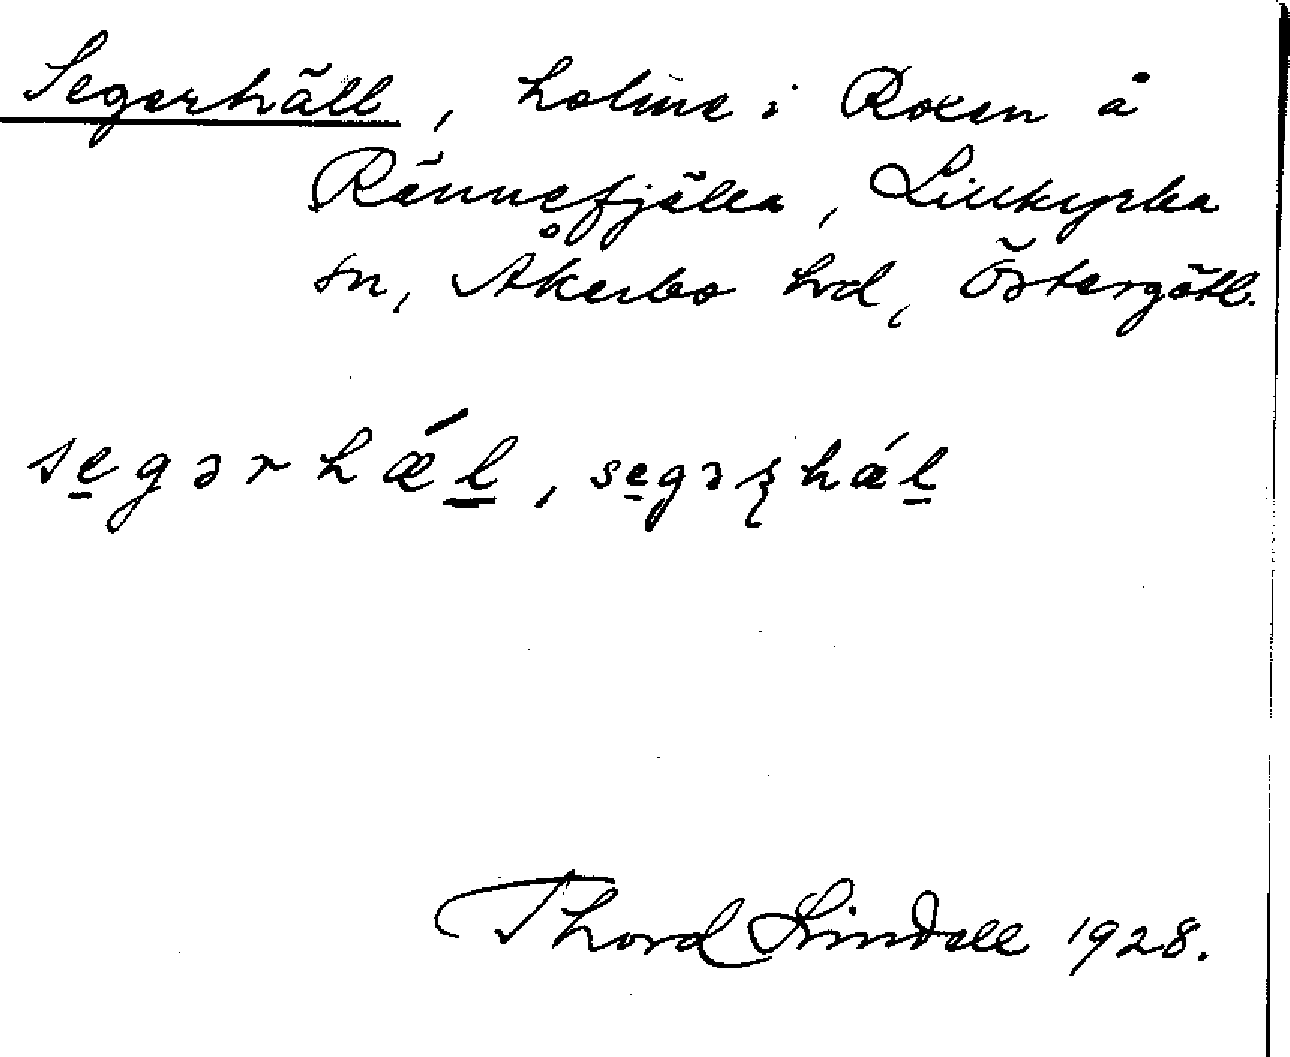 Segerhäll, holme i Roxen å
Rännefjälla, Lillkyrka
sn, Åkerbo hd, Östergötl.
se̱gərhǽḻ, se̱gəʂhǽḻ
Thord Lindell 1928.